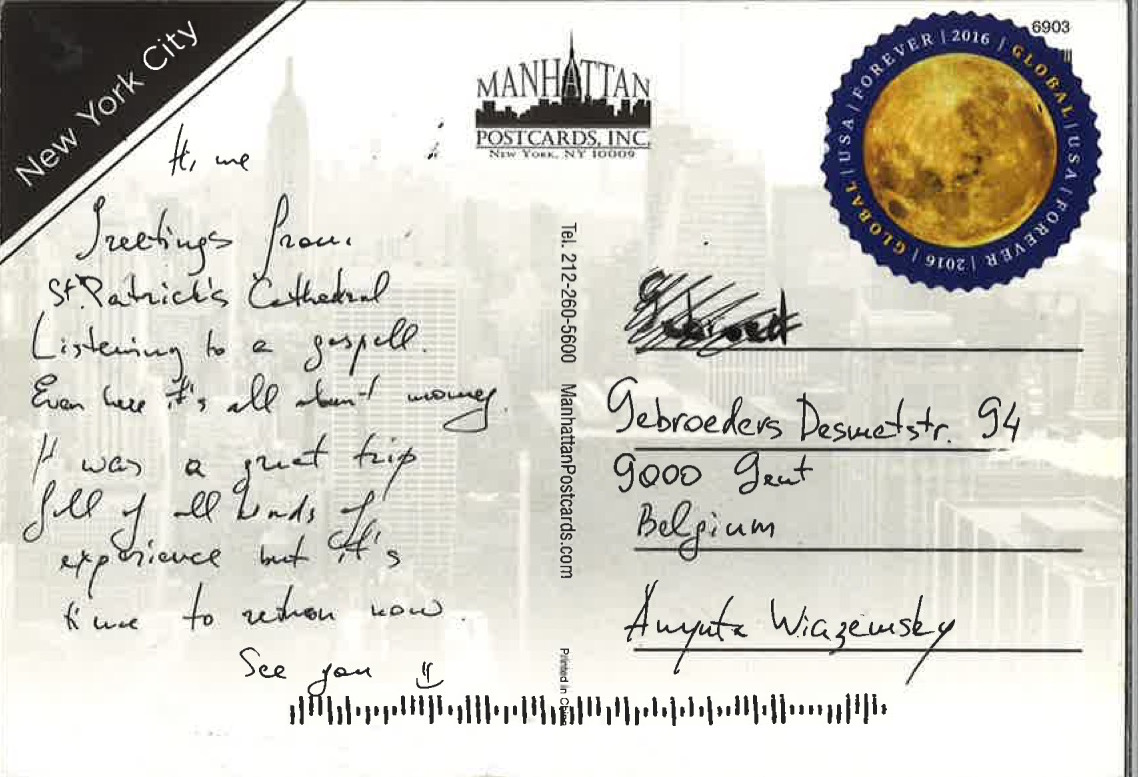 New York City
MANHATTAN
POSTCARDS, INC.
NEW YORK, NY 10009
6903
GLOBAL | USA | FOREVER | 2016 | GLOBAL | USA | FOREVER | 2016 |
Hi, me
Greetings from
St Patrick's Cathedral
Listening to a gospell.
Even here it's all about money.
It was a great trip
full of all kinds of
experience but it's
time to return now.
See you
Tel. 212-260-5600 ManhattanPostcards.com
Printed in China
Gebroeders Desmetstr. 94
9000 Gent
Belgium
Amynta Wiazemsky